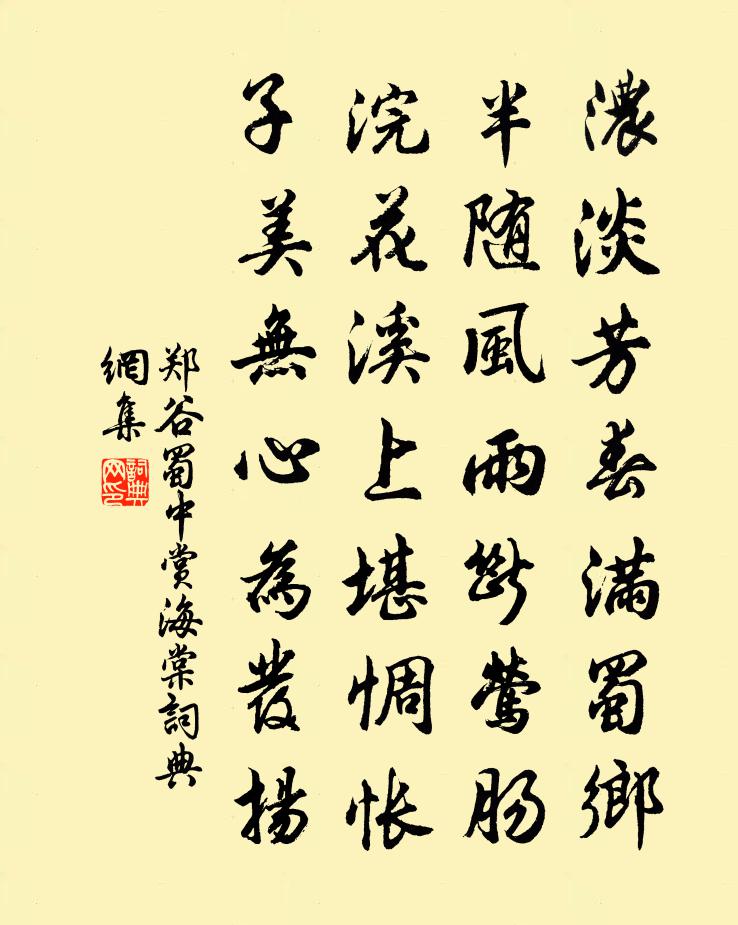 濃淡芳春滿蜀鄉
半随風雨斷鶯肠
浣花溪上堪惆怅
子美無心為發揚
郑谷蜀中赏海棠詞典
網集
詞典
网印